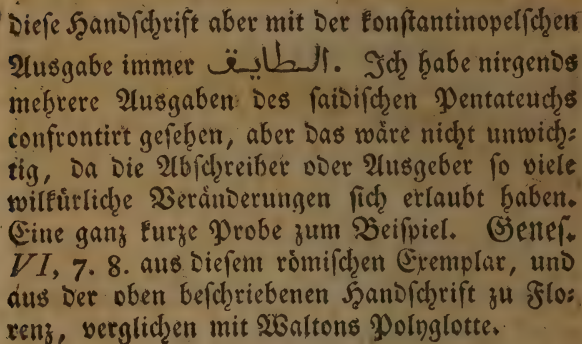 dieſe Handſchrift aber mit der konſtantinopelſchen
Ausgabe immer الطايق. Ich habe nirgends
mehrere Ausgaben des ſaidiſchen Pentateuchs
confrontirt geſehen, aber das wäre nicht unwich⸗
tig, da die Abſchreiber oder Ausgeber ſo viele
wilkürliche Veränderungen ſich erlaubt haben.
Eine ganz kurze Probe zum Beiſpiel. Geneſ.
VI, 7. 8. aus dieſem römiſchen Exemplar, und
aus der oben beſchriebenen Handſchrift zu Flo⸗
renz, verglichen mit Waltons Polyglotte.